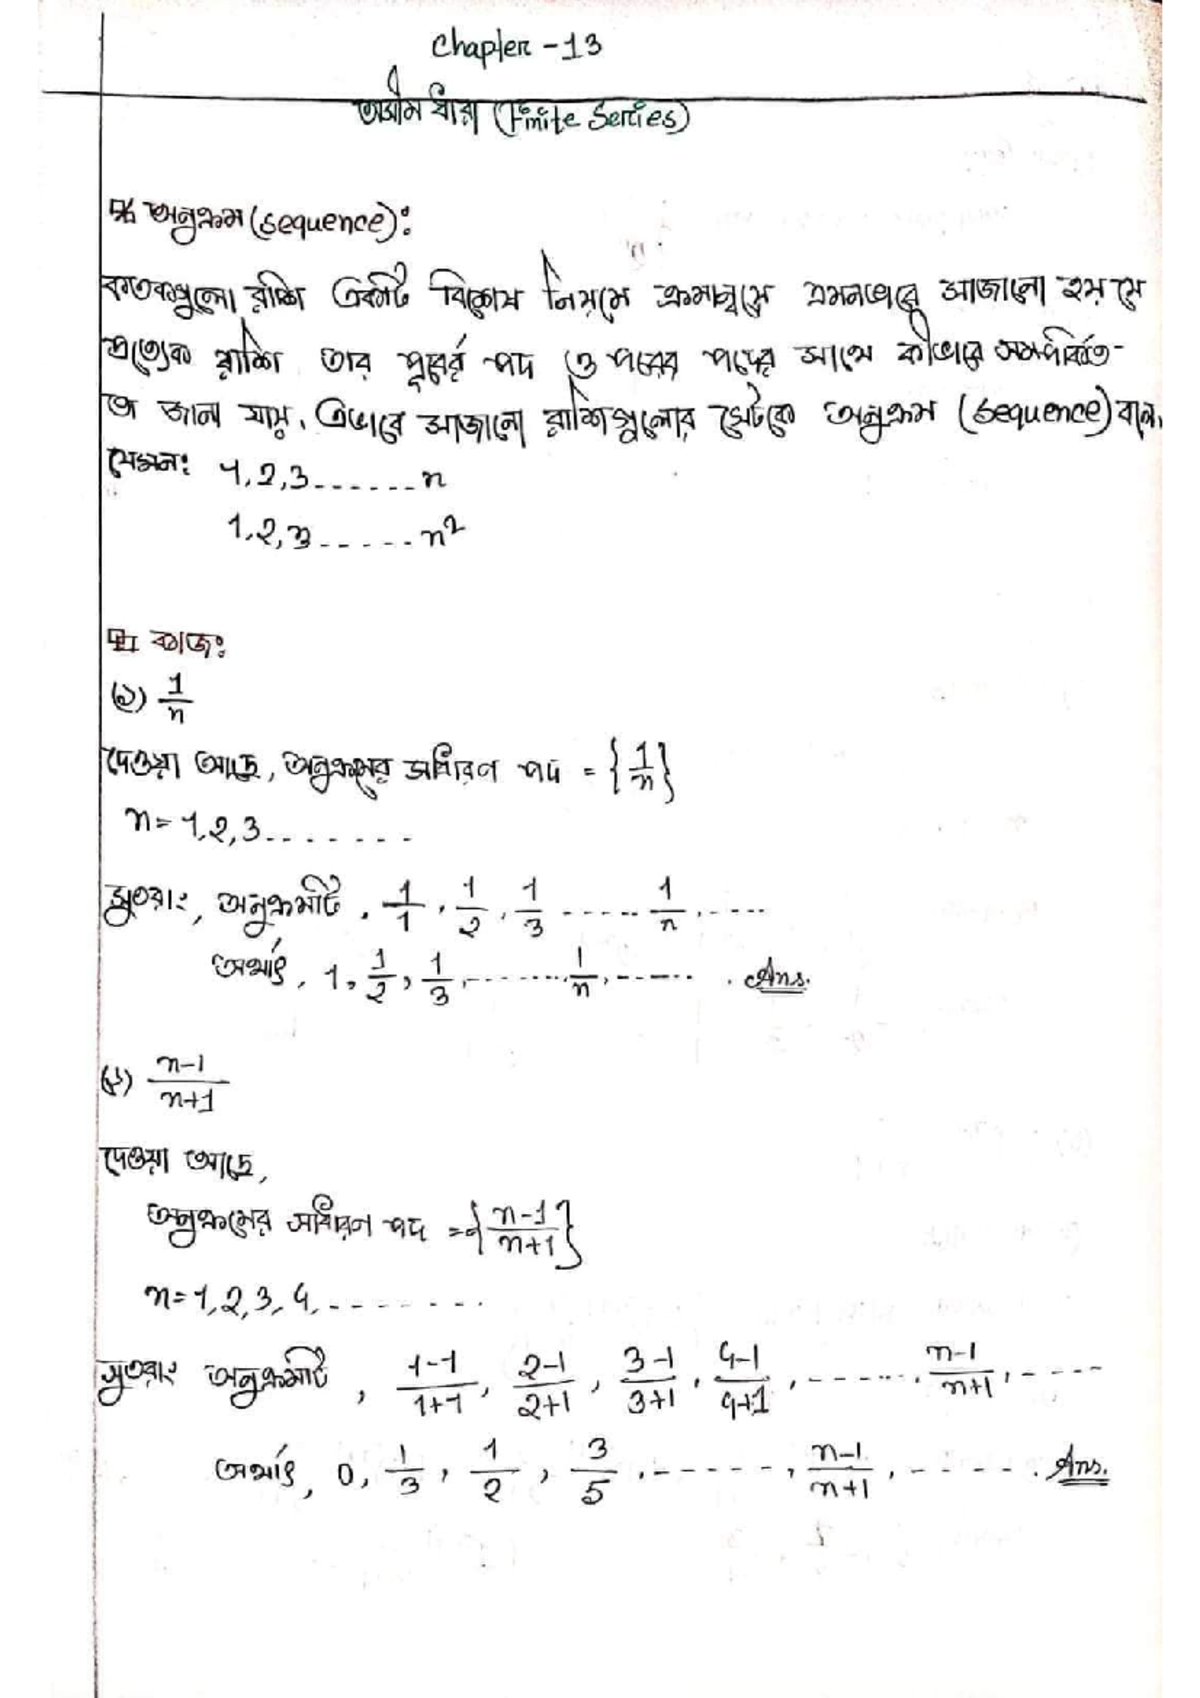 Chapter -13
অসীম ধারা (Finite Series)
অনুক্রম (sequence):
কতকগুলো রাশি একটি বিশেষ নিয়মে ক্রমান্বয়ে এমনভাবে সাজানো হয় যে
প্রত্যেক রাশি তার পূর্বের পদ ও পরের পদের সাথে কীভাবে সম্পর্কিত-
তা জানা যায়, এভাবে সাজানো রাশিগুলোর সেটকে অনুক্রম (sequence) বলে,
যেমন: 1,2,3......n
1,2,3......n²
কাজ:
(১) 1/n
দেওয়া আছে, অনুক্রমের সাধারণ পদ = {1/n}
n = 1,2,3.......
সুতরাং, অনুক্রমটি, 1/1, 1/2, 1/3 ...... 1/n, .....
অর্থাৎ, 1, 1/2, 1/3, ....... 1/n, ...... . Ans.
(২) n-1/n+1
দেওয়া আছে,
অনুক্রমের সাধারণ পদ = {n-1/n+1}
n = 1,2,3,4, ........
সুতরাং অনুক্রমটি, 1-1/1+1, 2-1/2+1, 3-1/3+1, 4-1/4+1, ......., n-1/n+1, ....
অর্থাৎ, 0, 1/3, 1/2, 3/5, ......, n-1/n+1, ..... . Ans.